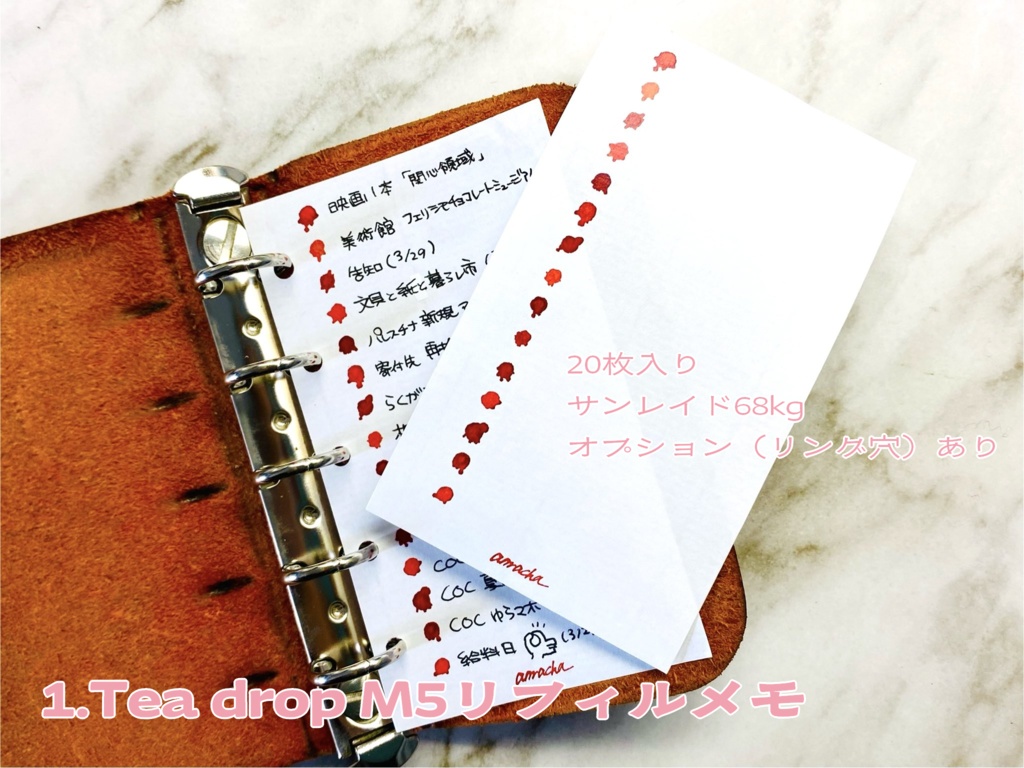 映画1本「関心領域」
美術館 フェリシモチョコレートミュージアム
告知(3/29)
文具と紙と暮らし市(
パレスチナ 新規
寄付先 再
らくが
COC
COC 夏
COC ゆらマホ
給料日 (3/2
amacha
amacha
20枚入り
サンレイド68kg
オプション（リング穴）あり
1.Tea drop M5リフィルメモ